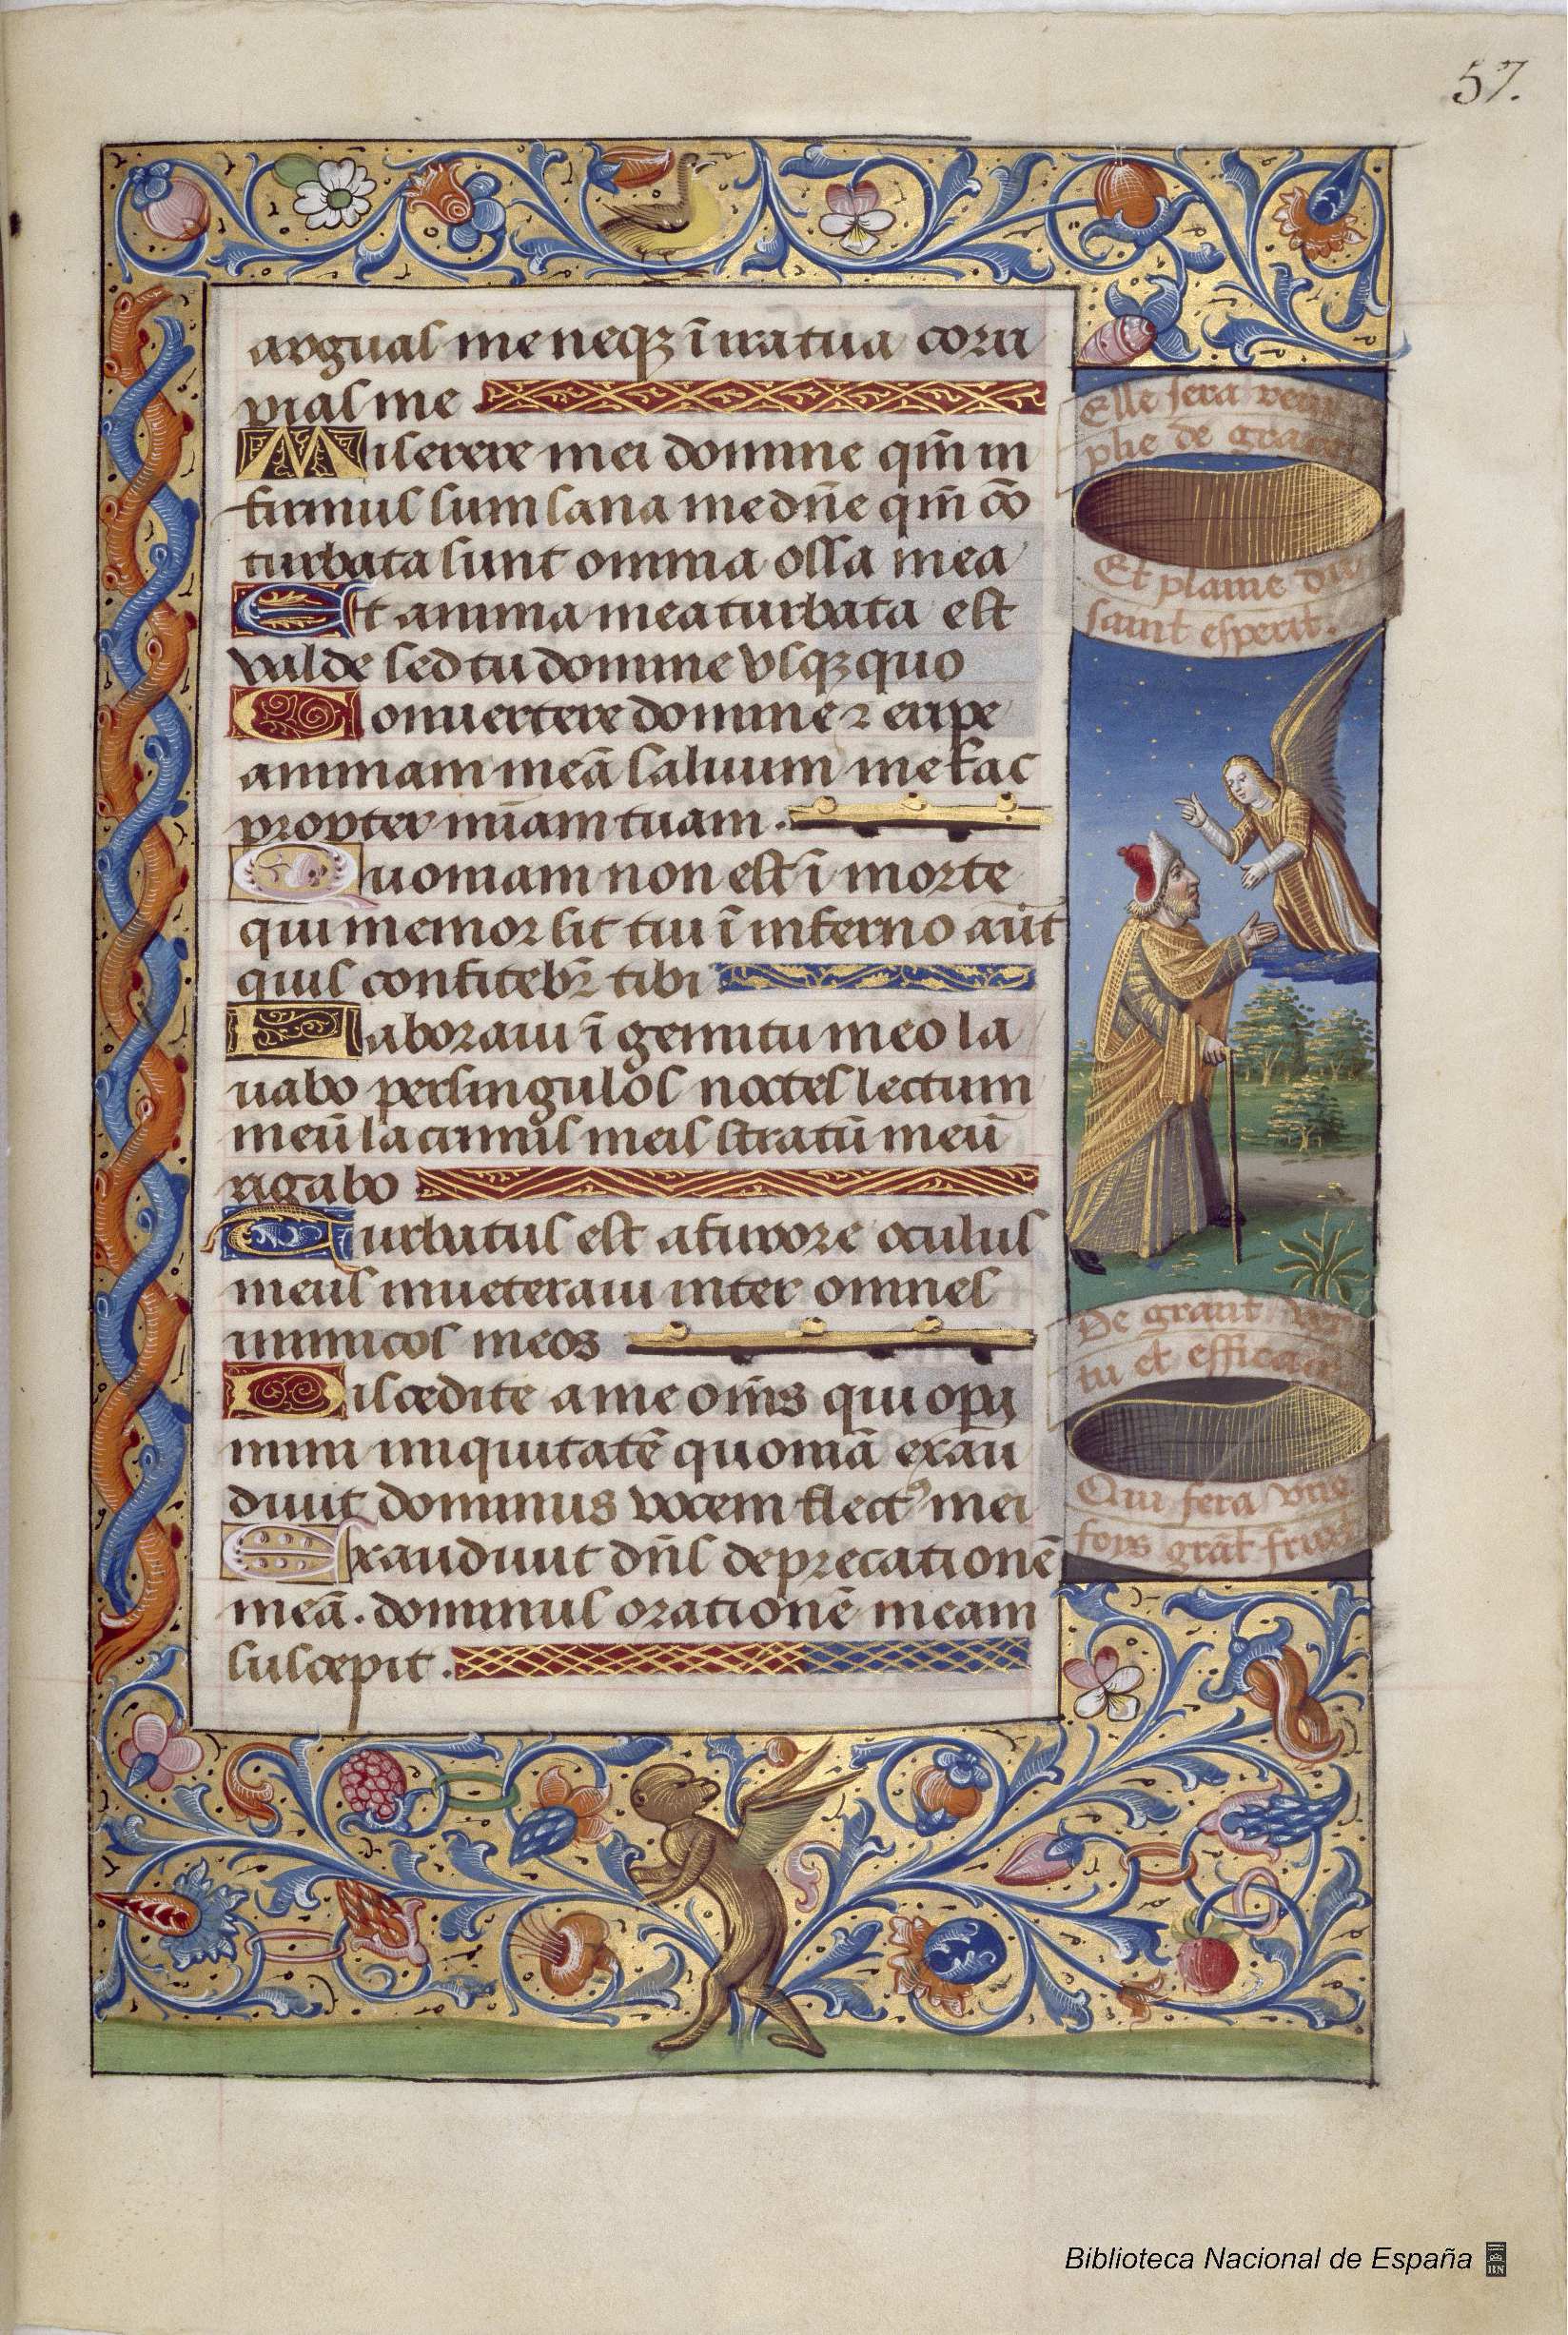 57.
arguas me neqȝ ī ira tua cori
pias me
Miserere mei domine qm̄ in
firmus sum sana me dn̄e qm̄ cō
turbata sunt omnia ossa mea
Et anima mea turbata est
valde sed tu domine vsqȝ quo
Conuertere domine ⁊ eripe
animam meā saluum me fac
propter mīam tuam .
Quoniam non est ī morte
qui memor sit tui ī inferno aūt
quis confitebꝛ tibi
Laboraui ī gemitu meo la
uabo per singulos noctes lectum
meū lacrimis meis stratū meū
rigabo
Turbatus est a furore oculus
meus inueteraui inter omnes
inimicos meos
Discedite a me om̄s qui opa
mini iniquitatē quoniā exau
diuit dominus vocem flectꝰ mei
Exaudiuit dn̄s deprecationē
meā . dominus orationē meam
suscepit .
Elle sera
plie de
Et plaine du
saint esperit .
De grant ver
tu et
Qui fera vng
fors grāt fruit
Biblioteca Nacional de España